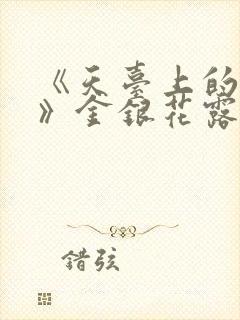 《天臺上的
》金銀花露
錯弦